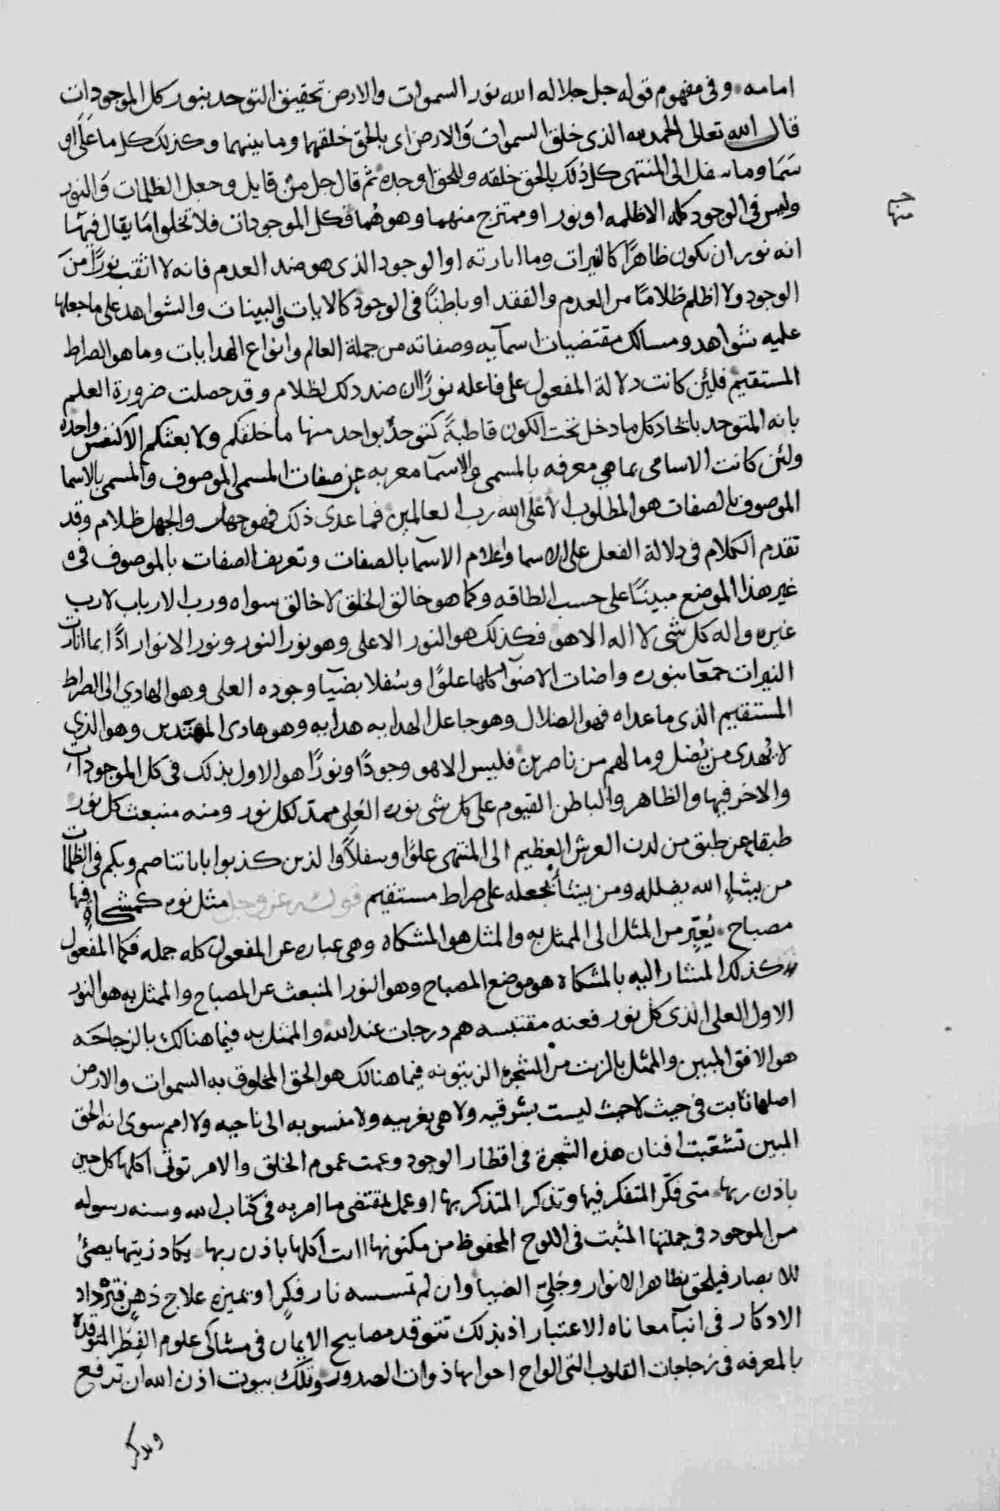 امامه وفى مفهوم قوله جل جلاله الله نور السموات والارض تحقيق التوحد بنور كل الموجودات
قال الله تعالى الحمد لله الذى خلق السموات والارض اى بالحق خلقهما وما بينهما وكذلك كل ما علا او
سما وما سفل الى المنتهى كل ذلك بالحق خلقه وللحق اوجده ثم قال جل من قايل وجعل الظلمات والنور
وليس فى الوجود كله الا ظلمه او نور او ممتزج منهما وهو هما فكل الموجودات فلا تخلوا ما يقال فيها
انه نور ان يكون ظاهرًا كالنيرات وما انارته او الوجود الذى هو ضد العدم فانه لا اثقب نورًا من
الوجود ولا اظلم ظلامًا من العدم والفقد او باطنًا فى الوجود كالايات والبينات والشواهد على ما جعلها
عليه شواهد ومسالك مقتضيات اسمآيه وصفاته من جملة العالم وانواع الهدايات وما هو الصراط
المستقيم فلئن كانت دلالة المفعول على فاعله نورًا ان ضد ذلك لظلام وقد حصلت ضرورة العلم
بانه المتوحد باتخاذ كل ما دخل تحت الكون قاطبةً كتوحد بواحد منها ما خلقكم ولا بعثكم الا كنفس واحدة
ولئن كانت الاسامى بما هى معرفه بالمسمى والاسمآ معربه عن صفات المسمى الموصوف والمسمى بالاسما
الموصوف بالصفات هو المطلوب الاعلى الله رب العالمين فما عدى ذلك فهو جهل والجهل ظلام وقد
تقدم الكلام فى دلالة الفعل على الاسما واعلام الاسما بالصفات وتعريف الصفات بالموصوف فى
غير هذا الموضع مبينًا على حسب الطاقه وكما هو خالق الخلق لا خالق سواه ورب الارباب لا رب
غيره واله كل شى لا اله الا هو فكذلك هو النور الاعلى وهو نور النور ونور الانوار اذًا بما انارت
النيرات جمعآ بنوره واضات الاضوآ كلها علوًا وسفلا بضيآ وجوده العلى وهو الهادى الى الصراط
المستقيم الذى ما عداه فهو الضلال وهو جاعل الهدايه هدايه وهو هادى المهتدين وهو الذى
لا يهدى من يُضل وما لهم من ناصرين فليس الا هو وجودًا ونورًا هو الاول بذلك فى كل الموجودات
والاخر فيها والظاهر والباطن القيوم على كل شى نوره العلى ممد لكل نور ومنه منبعث كل نور
طبقا عن طبق من لدن العرش العظيم الى المنتهى علوًا وسفلاً والذين كذبوا باياتنا صم وبكم فى الظلمات
من يشاء الله يضلله ومن يشأ يجعله على صراط مستقيم قوله عز وجل مثل نوره كمشكاة فيها
مصباح يُعبّر من المثل الى الممثل به والمثل هو المشكاه وهى عباره عن المفعول كله جمله فكما المفعول
كذلك المشار اليه بالمشكاه هو موضع المصباح وهو النور المنبعث عن المصباح والممثل به هو النور
الاول العلى الذى كل نور فعنه مقتبسه هم درجات عند الله والممثل به فيما هنالك بالزجاجه
هو الافق المبين والممثل بالزيت من الشجره الزيتونه فيما هنالك هو الحق المخلوق به السموات والارض
اصلها ثابت فى حيث لا حيث ليست بشرقيه ولا هى بغربيه ولا منسوبه الى ناحيه ولا امم سوى انه الحق
المبين تشعبت افنان هذه الشجرة فى اقطار الوجود وعمت عموم الخلق والامر توتى اكلها كل حين
باذن ربها متى فكّر المتفكر فيها وتذكر المتذكر بها او عمل بمقتضى ما امر به فى كتاب الله وسنه رسوله
من الموجود فى جملتها المثبت فى اللوح المحفوظ من مكنونها اتت اكلها باذن ربها يكاد زيتها يضئ
للابصار فيلحق بظاهر الانوار وجلىّ الضيا وان لم تمسسه نار فكر او تميزه علاج ذهن فتزداد
الاذكار فى انبآ معاناه الاعتبار اذ بذلك تتوقد مصابيح الايمان فى مشاكى علوم الفطر المتوقدة
بالمعرفه فى زجاجات القلوب التى الواح احوالها ذوات الصدور وتلك بيوت اذن الله ان ترفع
ويذكر